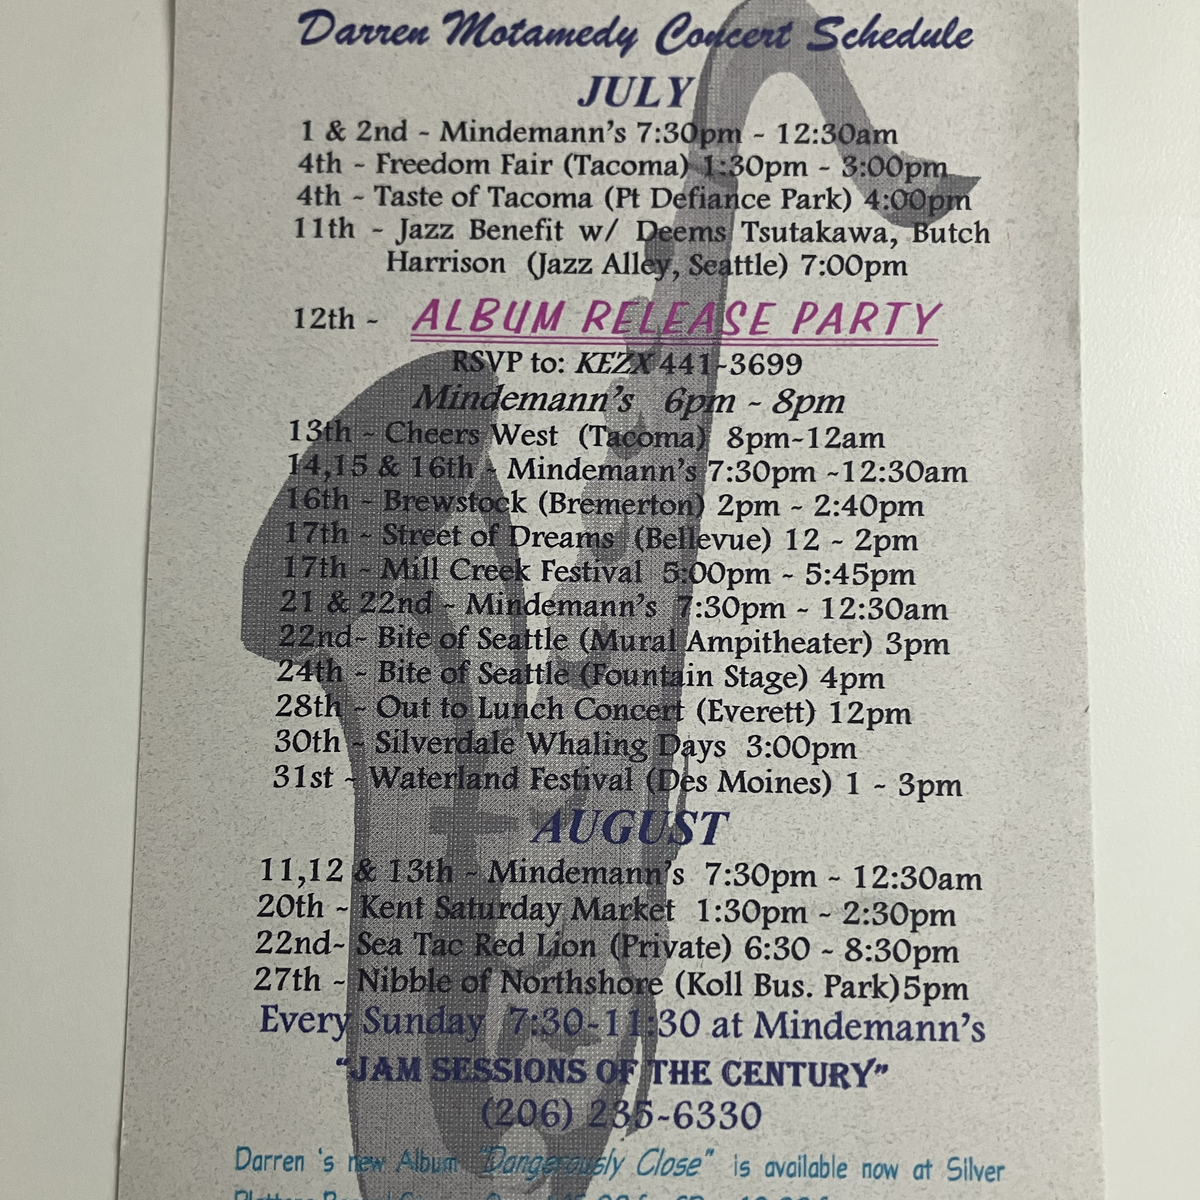 Darren Motamedy Concert Schedule
JULY
1 & 2nd - Mindemann's 7:30pm - 12:30am
4th - Freedom Fair (Tacoma) 1:30pm - 3:00pm
4th - Taste of Tacoma (Pt Defiance Park) 4:00pm
11th - Jazz Benefit w/ Deems Tsutakawa, Butch
Harrison (Jazz Alley, Seattle) 7:00pm
12th - ALBUM RELEASE PARTY
RSVP to: KEZX 441-3699
Mindemann's 6pm - 8pm
13th - Cheers West (Tacoma) 8pm-12am
14,15 & 16th - Mindemann's 7:30pm -12:30am
16th - Brewstock (Bremerton) 2pm - 2:40pm
17th - Street of Dreams (Bellevue) 12 - 2pm
17th - Mill Creek Festival 5:00pm - 5:45pm
21 & 22nd - Mindemann's 7:30pm - 12:30am
22nd- Bite of Seattle (Mural Ampitheater) 3pm
24th - Bite of Seattle (Fountain Stage) 4pm
28th - Out to Lunch Concert (Everett) 12pm
30th - Silverdale Whaling Days 3:00pm
31st - Waterland Festival (Des Moines) 1 - 3pm
AUGUST
11,12 & 13th - Mindemann's 7:30pm - 12:30am
20th - Kent Saturday Market 1:30pm - 2:30pm
22nd- Sea Tac Red Lion (Private) 6:30 - 8:30pm
27th - Nibble of Northshore (Koll Bus. Park)5pm
Every Sunday 7:30-11:30 at Mindemann's
"JAM SESSIONS OF THE CENTURY"
(206) 235-6330
Darren 's new Album "Dangerously Close" is available now at Silver